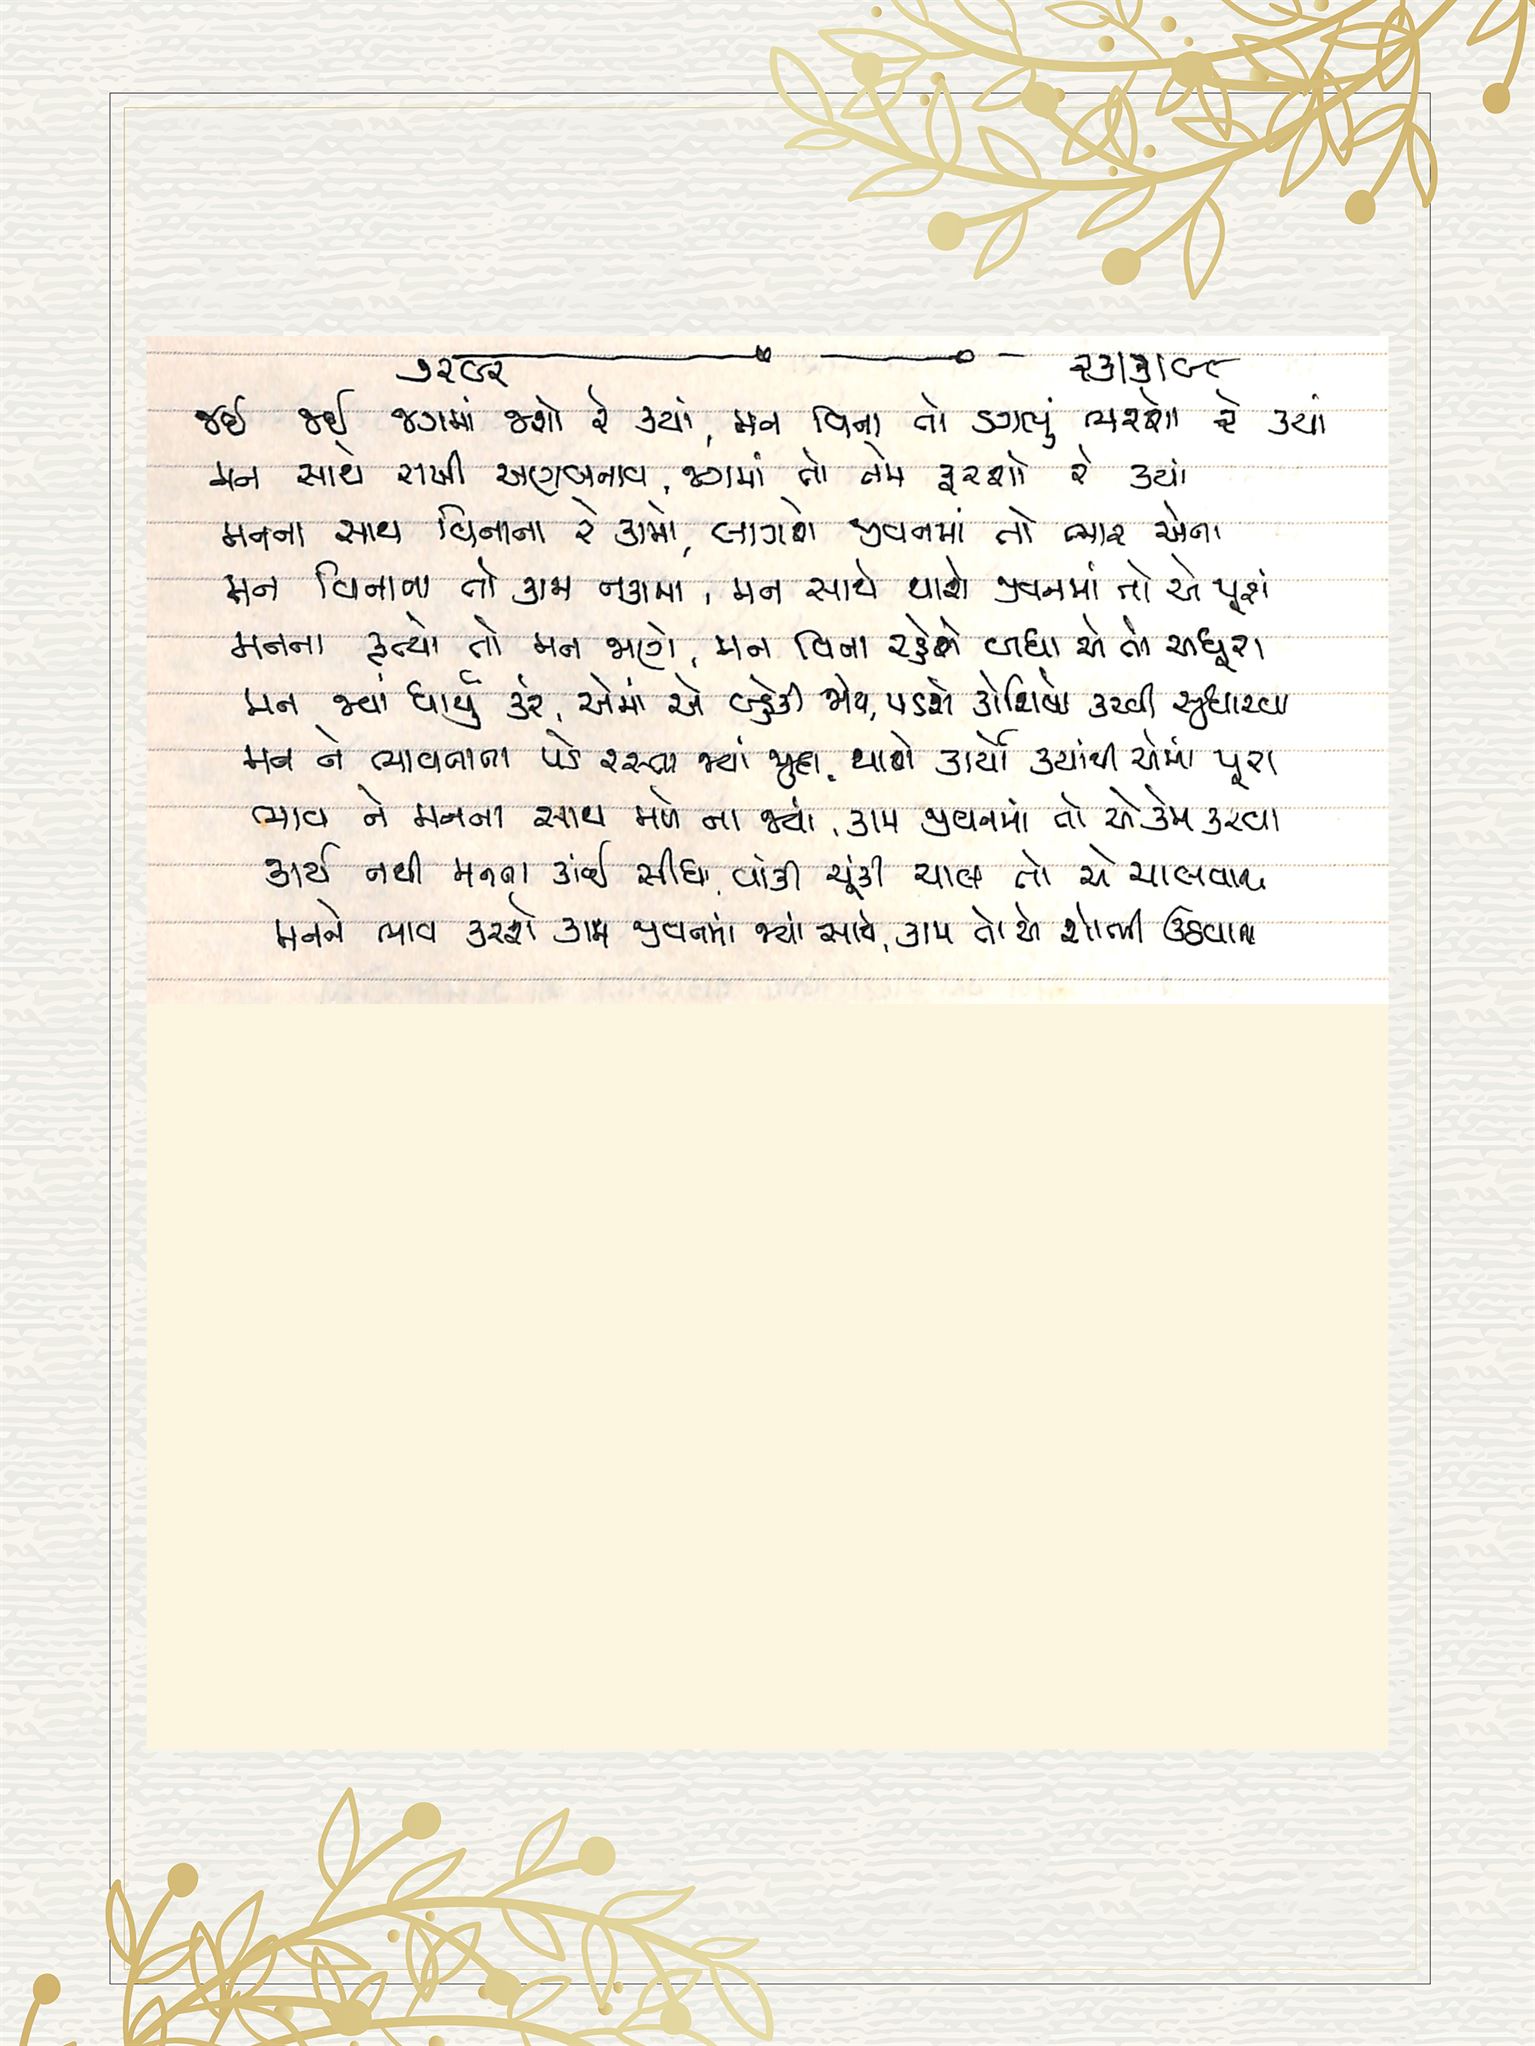 ૭૨૯૨ ૨૩/૩/૯૮
જઈ જઈ જગમાં જશો રે ક્યાં, મન વિના તો ડગલું ભરશો રે ક્યાં
મન સાથે રાખી અણબનાવ, જગમાં તો તેમ ફરશો રે ક્યાં
મનના સાથ વિનાના રે કામો, લાગશે જીવનમાં તો ભાર એના
મન વિનાના તો કામ નકામા, મન સાથે થાશે જીવનમાં તો એ પૂરાં
મનના કૃત્યો તો મન જાણે, મન વિના રહેશે બધા એ તો અધૂરા
મન જ્યાં ધાર્યું કરે, એમાં એ બહેકી જાય, પડશે કોશિષો કરવી સુધારવા
મન ને ભાવનાના પડે રસ્તા જ્યાં જુદા, થાશે કાર્યો ક્યાંથી એમાં પૂરા
ભાવ ને મનના સાથ મળે ના જ્યાં, કામ જીવનમાં તો એ કેમ કરવા
કાર્ય નથી મનના કાંઈ સીધા, વાંકી ચૂંકી ચાલ તો એ ચાલવાના
મનને ભાવ કરશે કામ જીવનમાં જ્યાં સાથે, કામ તો એ શોભી ઉઠવાના